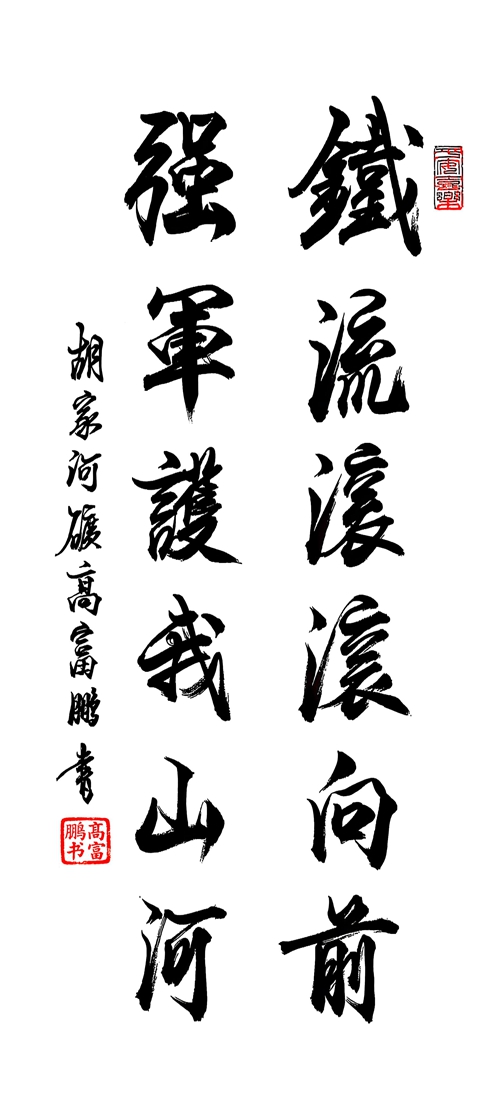 鐵流滾滾向前
强軍護我山河
胡家河礦高富鵬書
高富鵬书